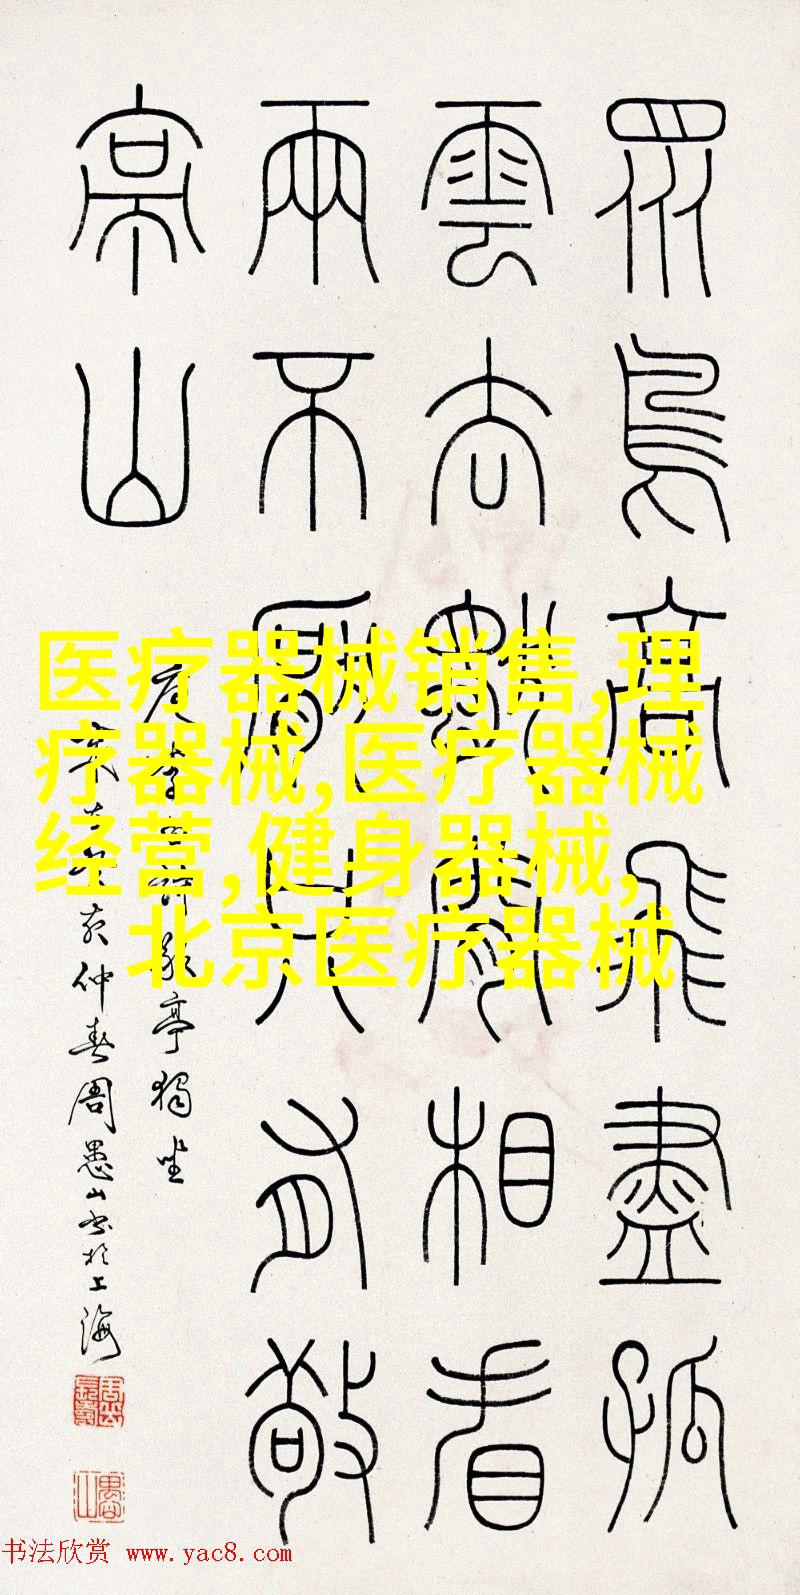 眾鳥高飛盡孤
雲去獨閒相看
兩不厭只有敬
亭山
唐李白詩敬亭獨坐
仲春周愚山書於上海
医疗器械销售,理
疗器械,医疗器械
经营,健身器械,
北京医疗器械
书法欣赏 www.yac8.com